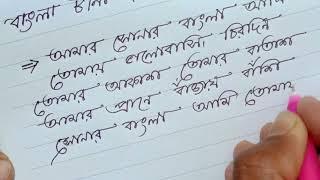 বাংলা
⇒ আমার সোনার বাংলা আমি
তোমায় ভালোবাসি। চিরদিন
তোমার আকাশ তোমার বাতাস
আমার প্রাণে বাজায় বাঁশী
সোনার বাংলা আমি তোমায়